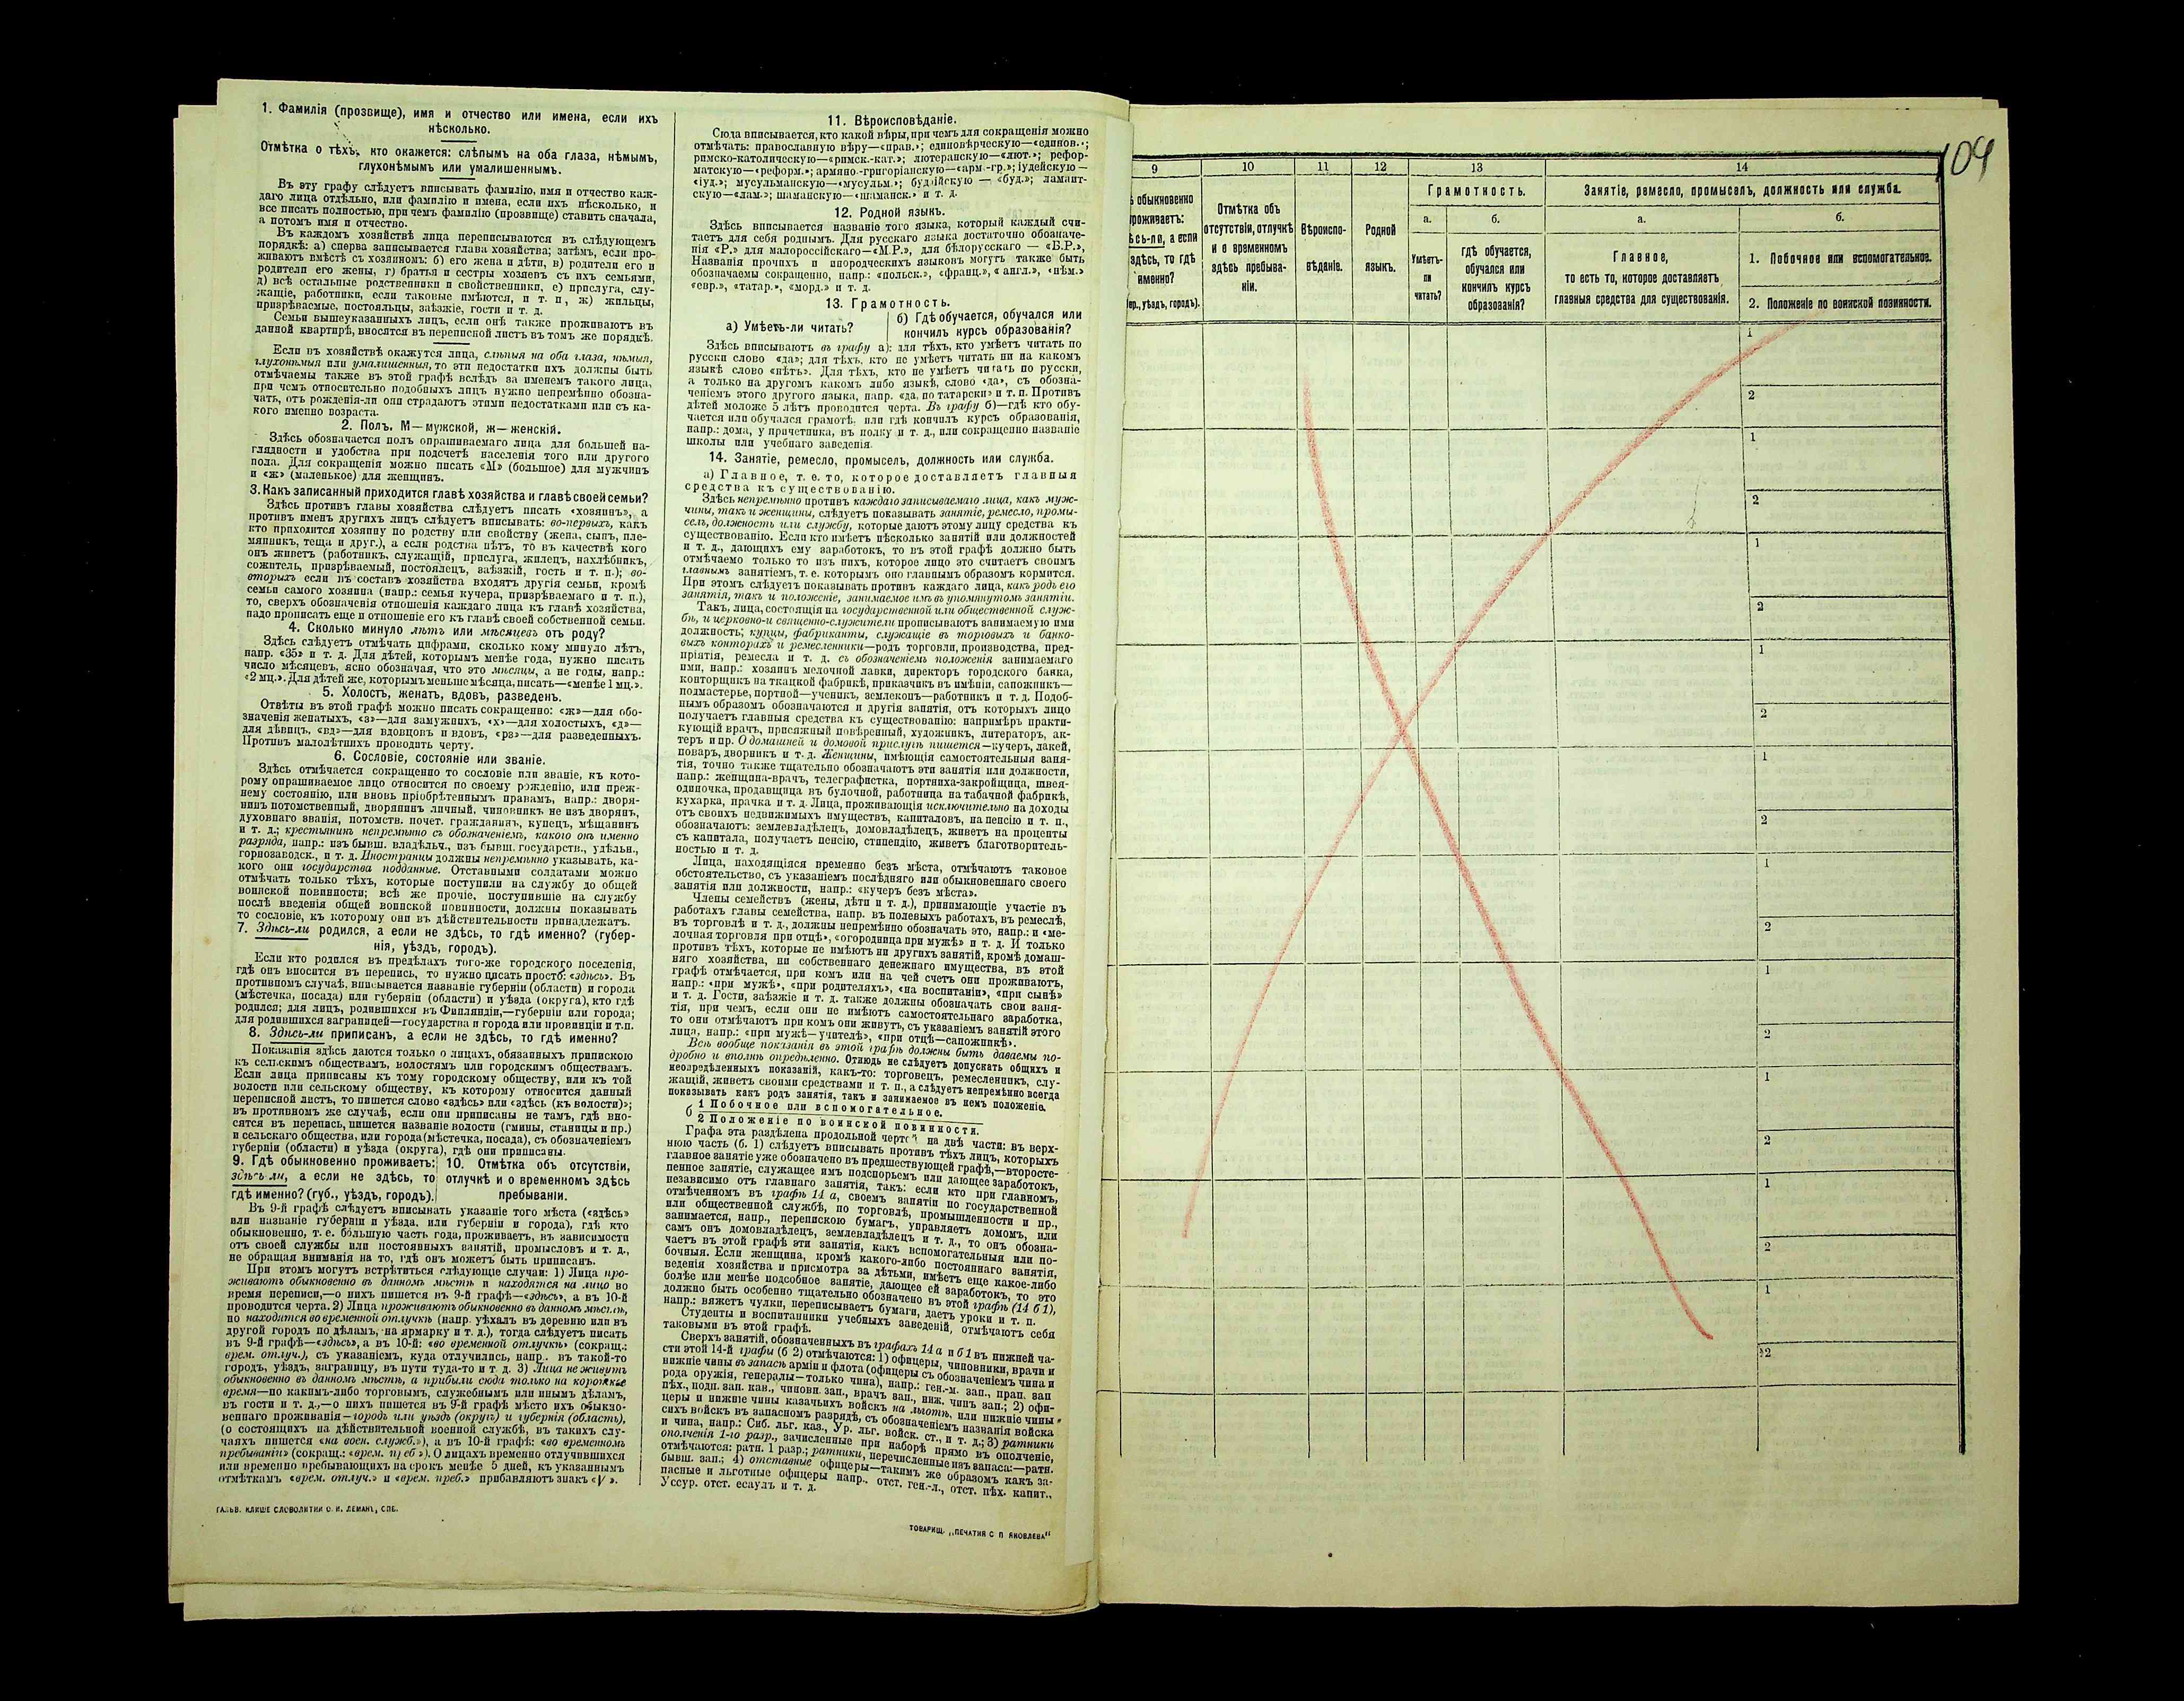 1. Фамилія (прозвище), имя и отчество или имена, если ихъ
нѣсколько.
Отмѣтка о тѣхъ, кто окажется: слѣпымъ на оба глаза, нѣмымъ,
глухонѣмымъ или умалишеннымъ.
Въ эту графу слѣдуетъ вписывать фамилію, имя и отчество каж-
даго лица отдѣльно, или фамилію и имена, если ихъ нѣсколько, и
все писать полностью, при чемъ фамилію (прозвище) ставить сначала,
а потомъ имя и отчество.
Въ каждомъ хозяйствѣ лица переписываются въ слѣдующемъ
порядкѣ: а) сперва записывается глава хозяйства; затѣмъ, если про-
живаютъ вмѣстѣ съ хозяиномъ: б) его жена и дѣти, в) родители его и
родители его жены, г) братья и сестры хозяевъ съ ихъ семьями,
д) всѣ остальные родственники и свойственники, е) прислуга, слу-
жащіе, работники, если таковые имѣются, и т. п., ж) жильцы,
призрѣваемые, постояльцы, заѣзжіе, гости и т. д.
Семьи вышеуказанныхъ лицъ, если онѣ также проживаютъ въ
данной квартирѣ, вносятся въ переписной листъ въ томъ же порядкѣ.
Если въ хозяйствѣ окажутся лица, слѣпыя на оба глаза, нѣмыя,
глухонѣмыя или умалишенныя, то эти недостатки ихъ должны быть
отмѣчаемы также въ этой графѣ вслѣдъ за именемъ такого лица,
при чемъ относительно подобныхъ лицъ нужно непремѣнно обозна-
чать, отъ рожденія-ли они страдаютъ этими недостатками или съ ка-
кого именно возраста.
2. Полъ. М—мужской, ж—женскій.
Здѣсь обозначается полъ опрашиваемаго лица для большей на-
глядности и удобства при подсчетѣ населенія того или другого
пола. Для сокращенія можно писать «М» (большое) для мужчинъ
и «ж» (маленькое) для женщинъ.
3. Какъ записанный приходится главѣ хозяйства и главѣ своей семьи?
Здѣсь противъ главы хозяйства слѣдуетъ писать «хозяинъ», а
противъ именъ другихъ лицъ слѣдуетъ вписывать: во-первыхъ, какъ
кто приходится хозяину по родству или свойству (жена, сынъ, пле-
мянникъ, теща и друг.), а если родства нѣтъ, то въ качествѣ кого
онъ живетъ (работникъ, служащій, прислуга, жилецъ, нахлѣбникъ,
сожитель, призрѣваемый, постоялецъ, заѣзжій, гость и т. п.); во-
вторыхъ если въ составъ хозяйства входятъ другія семьи, кромѣ
семьи самого хозяина (напр.: семья кучера, призрѣваемаго и т. п.),
то, сверхъ обозначенія отношенія каждаго лица къ главѣ хозяйства,
надо прописать еще и отношеніе его къ главѣ своей собственной семьи.
4. Сколько минуло лѣтъ или мѣсяцевъ отъ роду?
Здѣсь слѣдуетъ отмѣчать цифрами, сколько кому минуло лѣтъ,
напр. «35» и т. д. Для дѣтей, которымъ менѣе года, нужно писать
число мѣсяцевъ, ясно обозначая, что это мѣсяцы, а не годы, напр.:
«2 мц.». Для дѣтей же, которымъ меньше мѣсяца, писать—«менѣе 1 мц.».
5. Холостъ, женатъ, вдовъ, разведенъ.
Отвѣты въ этой графѣ можно писать сокращенно: «ж»—для обо-
значенія женатыхъ, «з»—для замужнихъ, «х»—для холостыхъ, «д»—
для дѣвицъ, «вд»—для вдовцовъ и вдовъ, «рз»—для разведенныхъ.
Противъ малолѣтнихъ проводить черту.
6. Сословіе, состояніе или званіе.
Здѣсь отмѣчается сокращенно то сословіе или званіе, къ кото-
рому опрашиваемое лицо относится по своему рожденію, или преж-
нему состоянію, или вновь пріобрѣтеннымъ правамъ, напр.: дворя-
нинъ потомственный, дворянинъ личный, чиновникъ не изъ дворянъ,
духовнаго званія, потомств. почет. гражданинъ, купецъ, мѣщанинъ
и т. д.; крестьянинъ непремѣнно съ обозначеніемъ, какого онъ именно
разряда, напр.: изъ бывш. владѣльч., изъ бывш. государств., удѣльн.,
горнозаводск., и т. д. Иностранцы должны непремѣнно указывать, ка-
кого они государства подданные. Отставными солдатами можно
отмѣчать только тѣхъ, которые поступили на службу до общей
воинской повинности; всѣ же прочіе, поступившіе на службу
послѣ введенія общей воинской повинности, должны показывать
то сословіе, къ которому они въ дѣйствительности принадлежатъ.
7. Здѣсь-ли родился, а если не здѣсь, то гдѣ именно? (губер-
нія, уѣздъ, городъ).
Если кто родился въ предѣлахъ того-же городского поселенія,
гдѣ онъ вносится въ перепись, то нужно писать просто: «здѣсь». Въ
противномъ случаѣ, вписывается названіе губерніи (области) и города
(мѣстечка, посада) или губерніи (области) и уѣзда (округа), кто гдѣ
родился; для лицъ, родившихся въ Финляндіи,—губерніи или города;
для родившихся заграницей—государства и города или провинціи и т.п.
8. Здѣсь-ли приписанъ, а если не здѣсь, то гдѣ именно?
Показанія здѣсь даются только о лицахъ, обязанныхъ припискою
къ сельскимъ обществамъ, волостямъ или городскимъ обществамъ.
Если лица приписаны къ тому городскому обществу, или къ той
волости или сельскому обществу, къ которому относится данный
переписной листъ, то пишется слово «здѣсь» или «здѣсь (къ волости)»;
въ противномъ же случаѣ, если они приписаны не тамъ, гдѣ вно-
сятся въ перепись, пишется названіе волости (гмины, станицы и пр.)
и сельскаго общества, или города (мѣстечка, посада), съ обозначеніемъ
губерніи (области) и уѣзда (округа), гдѣ они приписаны.
9. Гдѣ обыкновенно проживаетъ:
здѣсь-ли, а если не здѣсь, то
гдѣ именно? (губ., уѣздъ, городъ).
10. Отмѣтка объ отсутствіи,
отлучкѣ и о временномъ здѣсь
пребываніи.
Въ 9-й графѣ слѣдуетъ вписывать указаніе того мѣста («здѣсь»
или названіе губерніи и уѣзда, или губерніи и города), гдѣ кто
обыкновенно, т. е. большую часть года, проживаетъ, въ зависимости
отъ своей службы или постоянныхъ занятій, промысловъ и т. д.,
не обращая вниманія на то, гдѣ онъ можетъ быть приписанъ.
При этомъ могутъ встрѣтиться слѣдующіе случаи: 1) Лица про-
живаютъ обыкновенно въ данномъ мѣстѣ и находятся на лицо во
время переписи,—о нихъ пишется въ 9-й графѣ—«здѣсь», а въ 10-й
проводится черта. 2) Лица проживаютъ обыкновенно въ данномъ мѣстѣ,
но находятся во временной отлучкѣ (напр. уѣхалъ въ деревню или въ
другой городъ по дѣламъ, на ярмарку и т. д.), тогда слѣдуетъ писать
въ 9-й графѣ—«здѣсь», а въ 10-й: «во временной отлучкѣ» (сокращ.:
врем. отлуч.), съ указаніемъ, куда отлучились, напр. въ такой-то
городъ, уѣздъ, заграницу, въ пути туда-то и т. д. 3) Лица не живутъ
обыкновенно въ данномъ мѣстѣ, а прибыли сюда только на короткое
время—по какимъ-либо торговымъ, служебнымъ или инымъ дѣламъ,
въ гости и т. д.,—о нихъ пишется въ 9-й графѣ мѣсто ихъ обыкно-
веннаго проживанія—городъ или уѣздъ (округъ) и губернія (область),
(о состоящихъ на дѣйствительной военной службѣ, въ такихъ слу-
чаяхъ пишется «на воен. служб.»), а въ 10-й графѣ: «во временномъ
пребываніи» (сокращ.: «врем. преб.»). О лицахъ временно отлучившихся
или временно пребывающихъ на срокъ менѣе 5 дней, къ указаннымъ
отмѣткамъ «врем. отлуч.» и «врем. преб.» прибавляютъ знакъ «V».
ГАЛЬВ. КЛИШЕ СЛОВОЛИТНИ О. И. ЛЕМАНЪ, СПБ.
11. Вѣроисповѣданіе.
Сюда вписывается, кто какой вѣры, при чемъ для сокращенія можно
отмѣчать: православную вѣру—«прав.»; единовѣрческую—«единов.»;
римско-католическую—«римск.-кат.»; лютеранскую—«лют.»; рефор-
матскую—«реформ.»; армяно-григоріанскую—«арм.-гр.»; іудейскую—
«іуд.»; мусульманскую—«мусульм.»; буддійскую — «буд.»; ламаит-
скую—«лам.»; шаманскую—«шаманск.» и т. д.
12. Родной языкъ.
Здѣсь вписывается названіе того языка, который каждый счи-
таетъ для себя роднымъ. Для русскаго языка достаточно обозначе-
нія «Р.» для малороссійскаго—«М.Р.», для бѣлорусскаго — «Б.Р.»,
Названія прочихъ и инородческихъ языковъ могутъ также быть
обозначаемы сокращенно, напр.: «польск.», «франц.», «англ.», «нѣм.»
«евр.», «татар.», «морд.» и т. д.
13. Грамотность.
а) Умѣетъ-ли читать?
б) Гдѣ обучается, обучался или
кончилъ курсъ образованія?
Здѣсь вписываютъ въ графу а): для тѣхъ, кто умѣетъ читать по
русски слово «да»; для тѣхъ, кто не умѣетъ читать ни на какомъ
языкѣ слово «нѣтъ». Для тѣхъ, кто не умѣетъ читать по русски,
а только на другомъ какомъ либо языкѣ, слово «да», съ обозна-
ченіемъ этого другого языка, напр. «да, по татарски» и т. п. Противъ
дѣтей моложе 5 лѣтъ проводится черта. Въ графу б)—гдѣ кто обу-
чается или обучался грамотѣ, или гдѣ кончилъ курсъ образованія,
напр.: дома, у причетника, въ полку и т. д., или сокращенно названіе
школы или учебнаго заведенія.
14. Занятіе, ремесло, промыселъ, должность или служба.
а) Главное, т. е. то, которое доставляетъ главныя
средства къ существованію.
Здѣсь непремѣнно противъ каждаго записываемаго лица, какъ муж-
чины, такъ и женщины, слѣдуетъ показывать занятіе, ремесло, промы-
селъ, должность или службу, которые даютъ этому лицу средства къ
существованію. Если кто имѣетъ нѣсколько занятій или должностей
и т. д., дающихъ ему заработокъ, то въ этой графѣ должно быть
отмѣчаемо только то изъ нихъ, которое лицо это считаетъ своимъ
главнымъ занятіемъ, т. е. которымъ оно главнымъ образомъ кормится.
При этомъ слѣдуетъ показывать противъ каждаго лица, какъ родъ его
занятія, такъ и положеніе, занимаемое имъ въ упомянутомъ занятіи.
Такъ, лица, состоящія на государственной или общественной служ-
бѣ, и церковно-и священно-служители прописываютъ занимаемую ими
должность; купцы, фабриканты, служащіе въ торговыхъ и банко-
выхъ конторахъ и ремесленники—родъ торговли, производства, пред-
пріятія, ремесла и т. д. съ обозначеніемъ положенія занимаемаго
ими, напр.: хозяинъ мелочной лавки, директоръ городского банка,
конторщикъ на ткацкой фабрикѣ, приказчикъ въ имѣніи, сапожникъ—
подмастерье, портной—ученикъ, землекопъ—работникъ и т. д. Подоб-
нымъ образомъ обозначаются и другія занятія, отъ которыхъ лицо
получаетъ главныя средства къ существованію: напримѣръ практи-
кующій врачъ, присяжный повѣренный, художникъ, литераторъ, ак-
теръ и пр. О домашней и домовой прислугѣ пишется—кучеръ, лакей,
поваръ, дворникъ и т. д. Женщины, имѣющія самостоятельныя заня-
тія, точно также тщательно обозначаютъ эти занятія или должности,
напр.: женщина-врачъ, телеграфистка, портниха-закройщица, швея-
одиночка, продавщица въ булочной, работница на табачной фабрикѣ,
кухарка, прачка и т. д. Лица, проживающія исключительно на доходы
отъ своихъ недвижимыхъ имуществъ, капиталовъ, на пенсію и т. п.,
обозначаютъ: землевладѣлецъ, домовладѣлецъ, живетъ на проценты
съ капитала, получаетъ пенсію, стипендію, живетъ благотворитель-
ностью и т. д.
Лица, находящіяся временно безъ мѣста, отмѣчаютъ таковое
обстоятельство, съ указаніемъ послѣдняго или обыкновеннаго своего
занятія или должности, напр.: «кучеръ безъ мѣста».
Члены семействъ (жены, дѣти и т. д.), принимающіе участіе въ
работахъ главы семейства, напр. въ полевыхъ работахъ, въ ремеслѣ,
въ торговлѣ и т. д., должны непремѣнно обозначать это, напр.: и «ме-
лочная торговля при отцѣ», «огородница при мужѣ» и т. д. И только
противъ тѣхъ, которые не имѣютъ ни другихъ занятій, кромѣ домаш-
няго хозяйства, ни собственнаго денежнаго имущества, въ этой
графѣ отмѣчается, при комъ или на чей счетъ они проживаютъ,
напр.: «при мужѣ», «при родителяхъ», «на воспитаніи», «при сынѣ»
и т. д. Гости, заѣзжіе и т. д. также должны обозначать свои заня-
тія, при чемъ, если они не имѣютъ самостоятельнаго заработка,
то они отмѣчаютъ при комъ они живутъ, съ указаніемъ занятій этого
лица, напр.: «при мужѣ—учителѣ», «при отцѣ—сапожникѣ».
Всѣ вообще показанія въ этой графѣ должны быть даваемы по-
дробно и вполнѣ опредѣленно. Отнюдь не слѣдуетъ допускать общихъ и
неопредѣленныхъ показаній, какъ-то: торговецъ, ремесленникъ, слу-
жащій, живетъ своими средствами и т. п., а слѣдуетъ непремѣнно всегда
показывать какъ родъ занятія, такъ и занимаемое въ немъ положеніе.
б 1 Побочное или вспомогательное.
2 Положеніе по воинской повинности.
Графа эта раздѣлена продольной чертой на двѣ части: въ верх-
нюю часть (б. 1) слѣдуетъ вписывать противъ тѣхъ лицъ, которыхъ
главное занятіе уже обозначено въ предшествующей графѣ,—второсте-
пенное занятіе, служащее имъ подспорьемъ или дающее заработокъ,
независимо отъ главнаго занятія, такъ: если кто при главномъ,
отмѣченномъ въ графѣ 14 а, своемъ занятіи по государственной
или общественной службѣ, по торговлѣ, промышленности и пр.,
занимается, напр., перепискою бумагъ, управляетъ домомъ, или
самъ онъ домовладѣлецъ, землевладѣлецъ и т. д., то онъ обозна-
чаетъ въ этой графѣ эти занятія, какъ вспомогательныя или по-
бочныя. Если женщина, кромѣ какого-либо постояннаго занятія,
веденія хозяйства и присмотра за дѣтьми, имѣетъ еще какое-либо
болѣе или менѣе подсобное занятіе, дающее ей заработокъ, то это
должно быть особенно тщательно обозначено въ этой графѣ (14 б 1),
напр.: вяжетъ чулки, переписываетъ бумаги, даетъ уроки и т. п.
Студенты и воспитанники учебныхъ заведеній, отмѣчаютъ себя
таковыми въ этой графѣ.
Сверхъ занятій, обозначенныхъ въ графахъ 14 а и б 1 въ нижней ча-
сти этой 14-й графы (б 2) отмѣчаются: 1) офицеры, чиновники, врачи и
нижніе чины въ запасѣ арміи и флота (офицеры съ обозначеніемъ чина и
рода оружія, генералы—только чина), напр.: ген.-м. зап., прап. зап
пѣх., подп. зап. кав., чиновн. зап., врачъ зап., ниж. чинъ зап.; 2) офи-
церы и нижніе чины казачьихъ войскъ на льготѣ, или нижніе чины
сихъ войскъ въ запасномъ разрядѣ, съ обозначеніемъ названія войска
и чина, напр.: Сиб. льг. каз., Ур. льг. войск. ст., и т. д.; 3) ратники
ополченія 1-го разр., зачисленные при наборѣ прямо въ ополченіе,
отмѣчаются: ратн. 1 разр.; ратники, перечисленные изъ запаса:—ратн.
бывш. зап.; 4) отставные офицеры—такимъ же образомъ какъ за-
пасные и льготные офицеры напр., отст. ген.-л., отст. пѣх. капит.,
Уссур. отст. есаулъ и т. д.
ТОВАРИЩ. „ПЕЧАТНЯ С П ЯКОВЛЕВА“
109
9
10
11
12
13
14
обыкновенно
проживаетъ:
здѣсь-ли, а если
здѣсь, то гдѣ
именно?
уѣздъ, городъ).
Отмѣтка объ
отсутствіи, отлучкѣ
и о временномъ
здѣсь пребыва-
ніи.
Вѣроиспо-
вѣданіе.
Родной
языкъ.
Грамотность.
а.
Умѣетъ-
ли
читать?
б.
гдѣ обучается,
обучался или
кончилъ курсъ
образованія?
Занятіе, ремесло, промыселъ, должность или служба.
а.
Главное,
то есть то, которое доставляетъ
главныя средства для существованія.
б.
1. Побочное или вспомогательное.
2. Положеніе по воинской повинности.
1
2
1
2
1
2
1
2
1
2
1
2
1
2
1
2
1
2
1
2